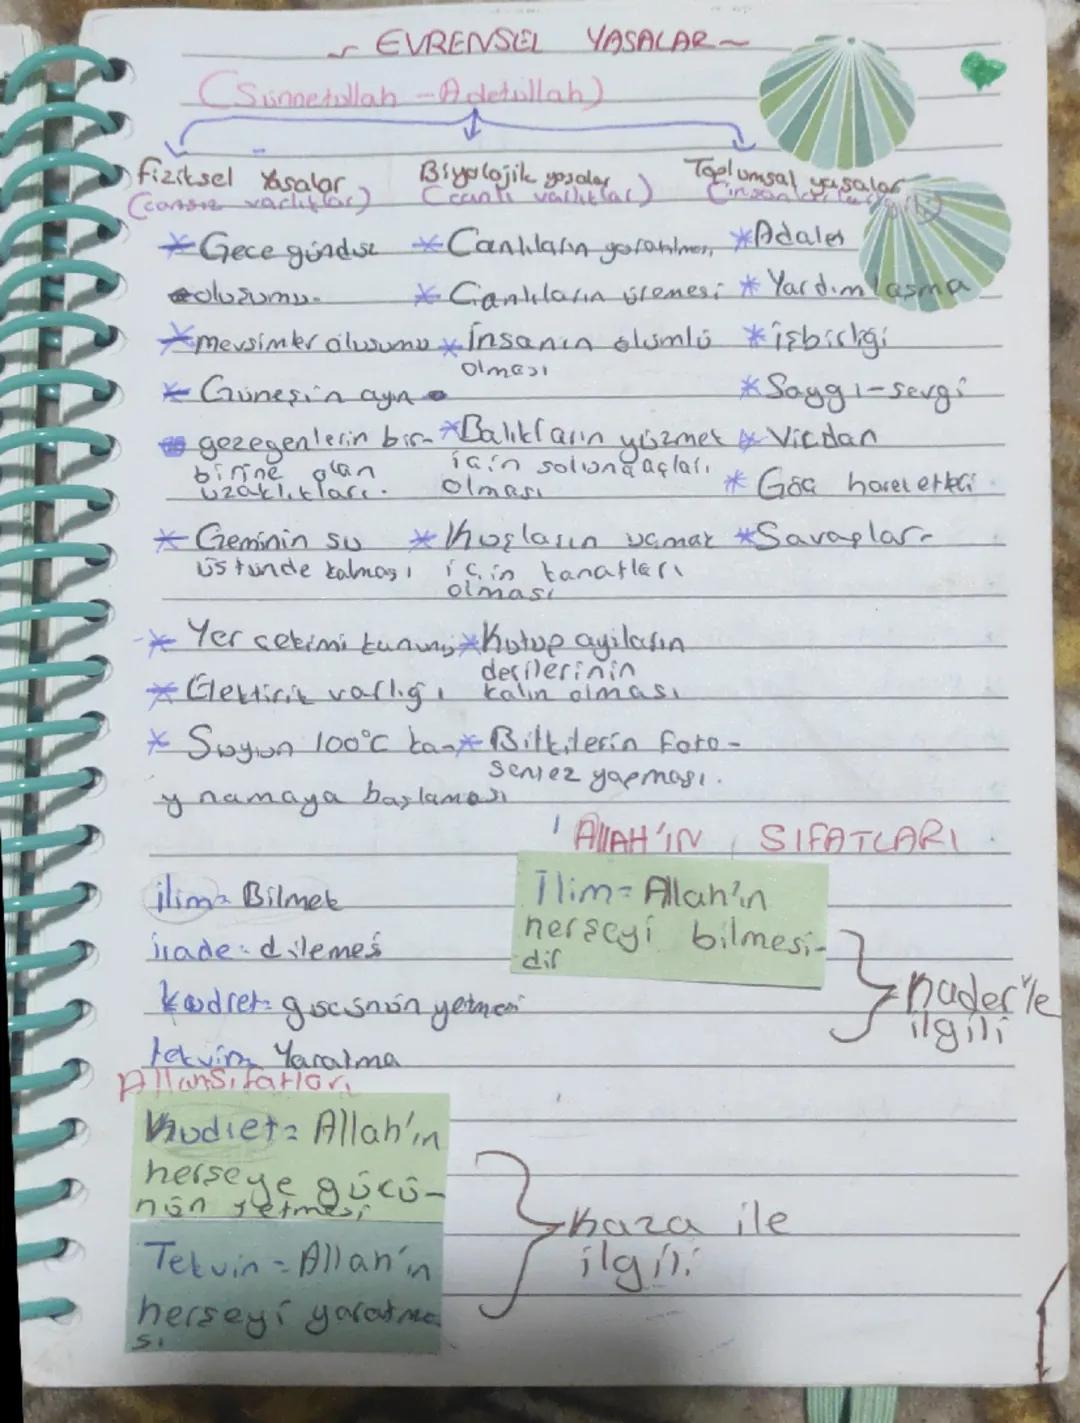 EVRENSEL YASALAR
(Sünnetullah - Adetullah)
fiziksel Yasalar
(cansız varlıklar)
Biyolojik yasalar
(canlı varlıklar)
Toplumsal yasalar
* Gece gündüz
oluşumu.
* mevsimler oluşumu
* Güneşin ayın
gezegenlerin bir-
birine olan
uzaklıkları.
* Geminin su
üstünde kalması
* Yer çekimi kanunu
* Elektirik varlığı
* Suyun 100°C ka-
ynamaya başlaması
* Canlıların yaratılması
* Canlıların üremesi
* İnsanın ölümlü
olması
* Balıkların yüzmek
için solungaçları
olması
* Kuşların uçmak
için kanatları
olması
* Kutup ayıların
derilerinin
kalın olması
* Bitkilerin foto-
sentez yapması.
* Adalet
* Yardımlaşma
* işbirliği
* Saygı-sevgi
* Vicdan
* Göç hareketleri
* Savaşlar
ALLAH'IN SIFATLARI
ilim = Bilmek
irade = dilemesi
kudret = gücünün yetmesi
tekvin = Yaratma
İlim = Allah'ın
herşeyi bilmesi-
dir
kader'le
ilgili
Allahın Sıfatları
Kudret = Allah'ın
herşeye gücü-
nün yetmesi
Tekvin = Allah'ın
herşeyi yaratma
sı
kaza ile
ilgili